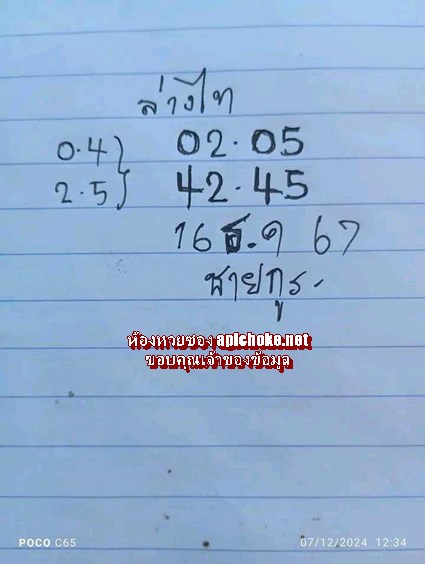 ล่างไท
0.4} 02.05
2.5} 42.45
16 ธ.ค 67
ชายกูร.
ห้องหวยซอง apichoke.net
ขอบคุณเจ้าของข้อมูล
POCO C65 07/12/2024 12:34